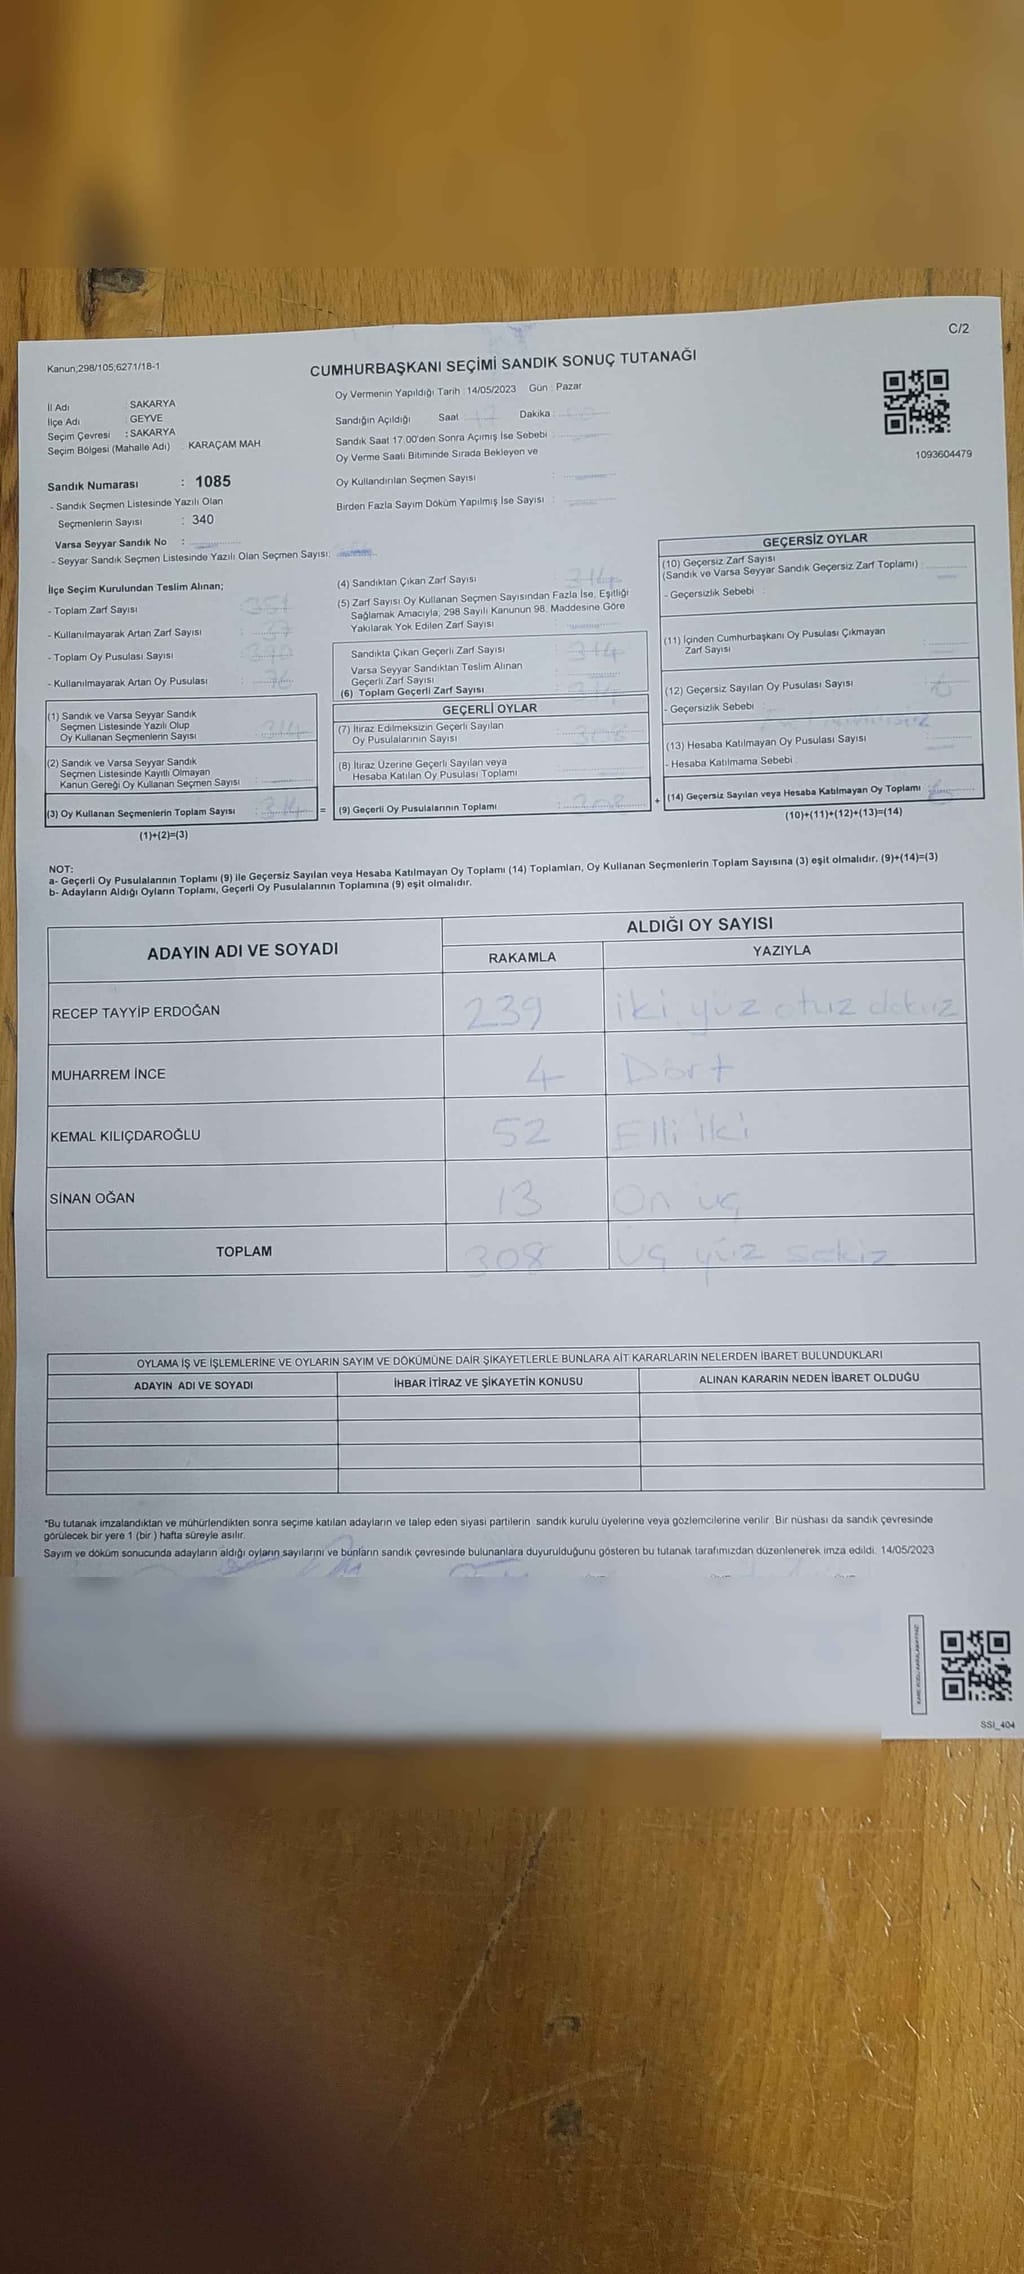 C/2
Kanun;298/105;6271/18-1
CUMHURBAŞKANI SEÇİMİ SANDIK SONUÇ TUTANAĞI
Oy Vermenin Yapıldığı Tarih : 14/05/2023 Gün : Pazar
İl Adı : SAKARYA
İlçe Adı : GEYVE
Seçim Çevresi : SAKARYA
Seçim Bölgesi (Mahalle Adı) : KARAÇAM MAH
Sandığın Açıldığı Saat : 17 Dakika :
Sandık Saat 17.00'den Sonra Açımış İse Sebebi :
Oy Verme Saati Bitiminde Sırada Bekleyen ve
Oy Kullandırılan Seçmen Sayısı :
Birden Fazla Sayım Döküm Yapılmış İse Sayısı :
1093604479
Sandık Numarası : 1085
- Sandık Seçmen Listesinde Yazılı Olan
Seçmenlerin Sayısı : 340
Varsa Seyyar Sandık No :
- Seyyar Sandık Seçmen Listesinde Yazılı Olan Seçmen Sayısı:
İlçe Seçim Kurulundan Teslim Alınan;
- Toplam Zarf Sayısı : 351
- Kullanılmayarak Artan Zarf Sayısı : 37
- Toplam Oy Pusulası Sayısı : 390
- Kullanılmayarak Artan Oy Pusulası : 76
(1) Sandık ve Varsa Seyyar Sandık
Seçmen Listesinde Yazılı Olup
Oy Kullanan Seçmenlerin Sayısı : 314
(2) Sandık ve Varsa Seyyar Sandık
Seçmen Listesinde Kayıtlı Olmayan
Kanun Gereği Oy Kullanan Seçmen Sayısı :
(3) Oy Kullanan Seçmenlerin Toplam Sayısı : 314 =
(1)+(2)=(3)
(4) Sandıktan Çıkan Zarf Sayısı : 314
(5) Zarf Sayısı Oy Kullanan Seçmen Sayısından Fazla İse, Eşitliği
Sağlamak Amacıyla, 298 Sayılı Kanunun 98. Maddesine Göre
Yakılarak Yok Edilen Zarf Sayısı :
Sandıkta Çıkan Geçerli Zarf Sayısı : 314
Varsa Seyyar Sandıktan Teslim Alınan
Geçerli Zarf Sayısı
(6) Toplam Geçerli Zarf Sayısı : 314
GEÇERLİ OYLAR
(7) İtiraz Edilmeksizin Geçerli Sayılan
Oy Pusulalarının Sayısı : 308
(8) İtiraz Üzerine Geçerli Sayılan veya
Hesaba Katılan Oy Pusulası Toplamı :
(9) Geçerli Oy Pusulalarının Toplamı : 308 +
GEÇERSİZ OYLAR
(10) Geçersiz Zarf Sayısı
(Sandık ve Varsa Seyyar Sandık Geçersiz Zarf Toplamı) :
- Geçersizlik Sebebi :
(11) İçinden Cumhurbaşkanı Oy Pusulası Çıkmayan
Zarf Sayısı :
(12) Geçersiz Sayılan Oy Pusulası Sayısı : 6
- Geçersizlik Sebebi :
(13) Hesaba Katılmayan Oy Pusulası Sayısı :
- Hesaba Katılmama Sebebi :
(14) Geçersiz Sayılan veya Hesaba Katılmayan Oy Toplamı : 6
(10)+(11)+(12)+(13)=(14)
NOT:
a- Geçerli Oy Pusulalarının Toplamı (9) ile Geçersiz Sayılan veya Hesaba Katılmayan Oy Toplamı (14) Toplamları, Oy Kullanan Seçmenlerin Toplam Sayısına (3) eşit olmalıdır. (9)+(14)=(3)
b- Adayların Aldığı Oyların Toplamı, Geçerli Oy Pusulalarının Toplamına (9) eşit olmalıdır.
ADAYIN ADI VE SOYADI
ALDIĞI OY SAYISI
RAKAMLA YAZIYLA
RECEP TAYYİP ERDOĞAN 239 iki yüz otuz dokuz
MUHARREM İNCE 4 Dört
KEMAL KILIÇDAROĞLU 52 Elli iki
SİNAN OĞAN 13 On üç
TOPLAM 308 Üç yüz sekiz
OYLAMA İŞ VE İŞLEMLERİNE VE OYLARIN SAYIM VE DÖKÜMÜNE DAİR ŞİKAYETLERLE BUNLARA AİT KARARLARIN NELERDEN İBARET BULUNDUKLARI
ADAYIN ADI VE SOYADI İHBAR İTİRAZ VE ŞİKAYETİN KONUSU ALINAN KARARIN NEDEN İBARET OLDUĞU
*Bu tutanak imzalandıktan ve mühürlendikten sonra seçime katılan adayların ve talep eden siyasi partilerin sandık kurulu üyelerine veya gözlemcilerine verilir. Bir nüshası da sandık çevresinde
görülecek bir yere 1 (bir) hafta süreyle asılır.
Sayım ve döküm sonucunda adayların aldığı oyların sayılarını ve bunların sandık çevresinde bulunanlara duyurulduğunu gösteren bu tutanak tarafımızdan düzenlenerek imza edildi. 14/05/2023
SSI_404